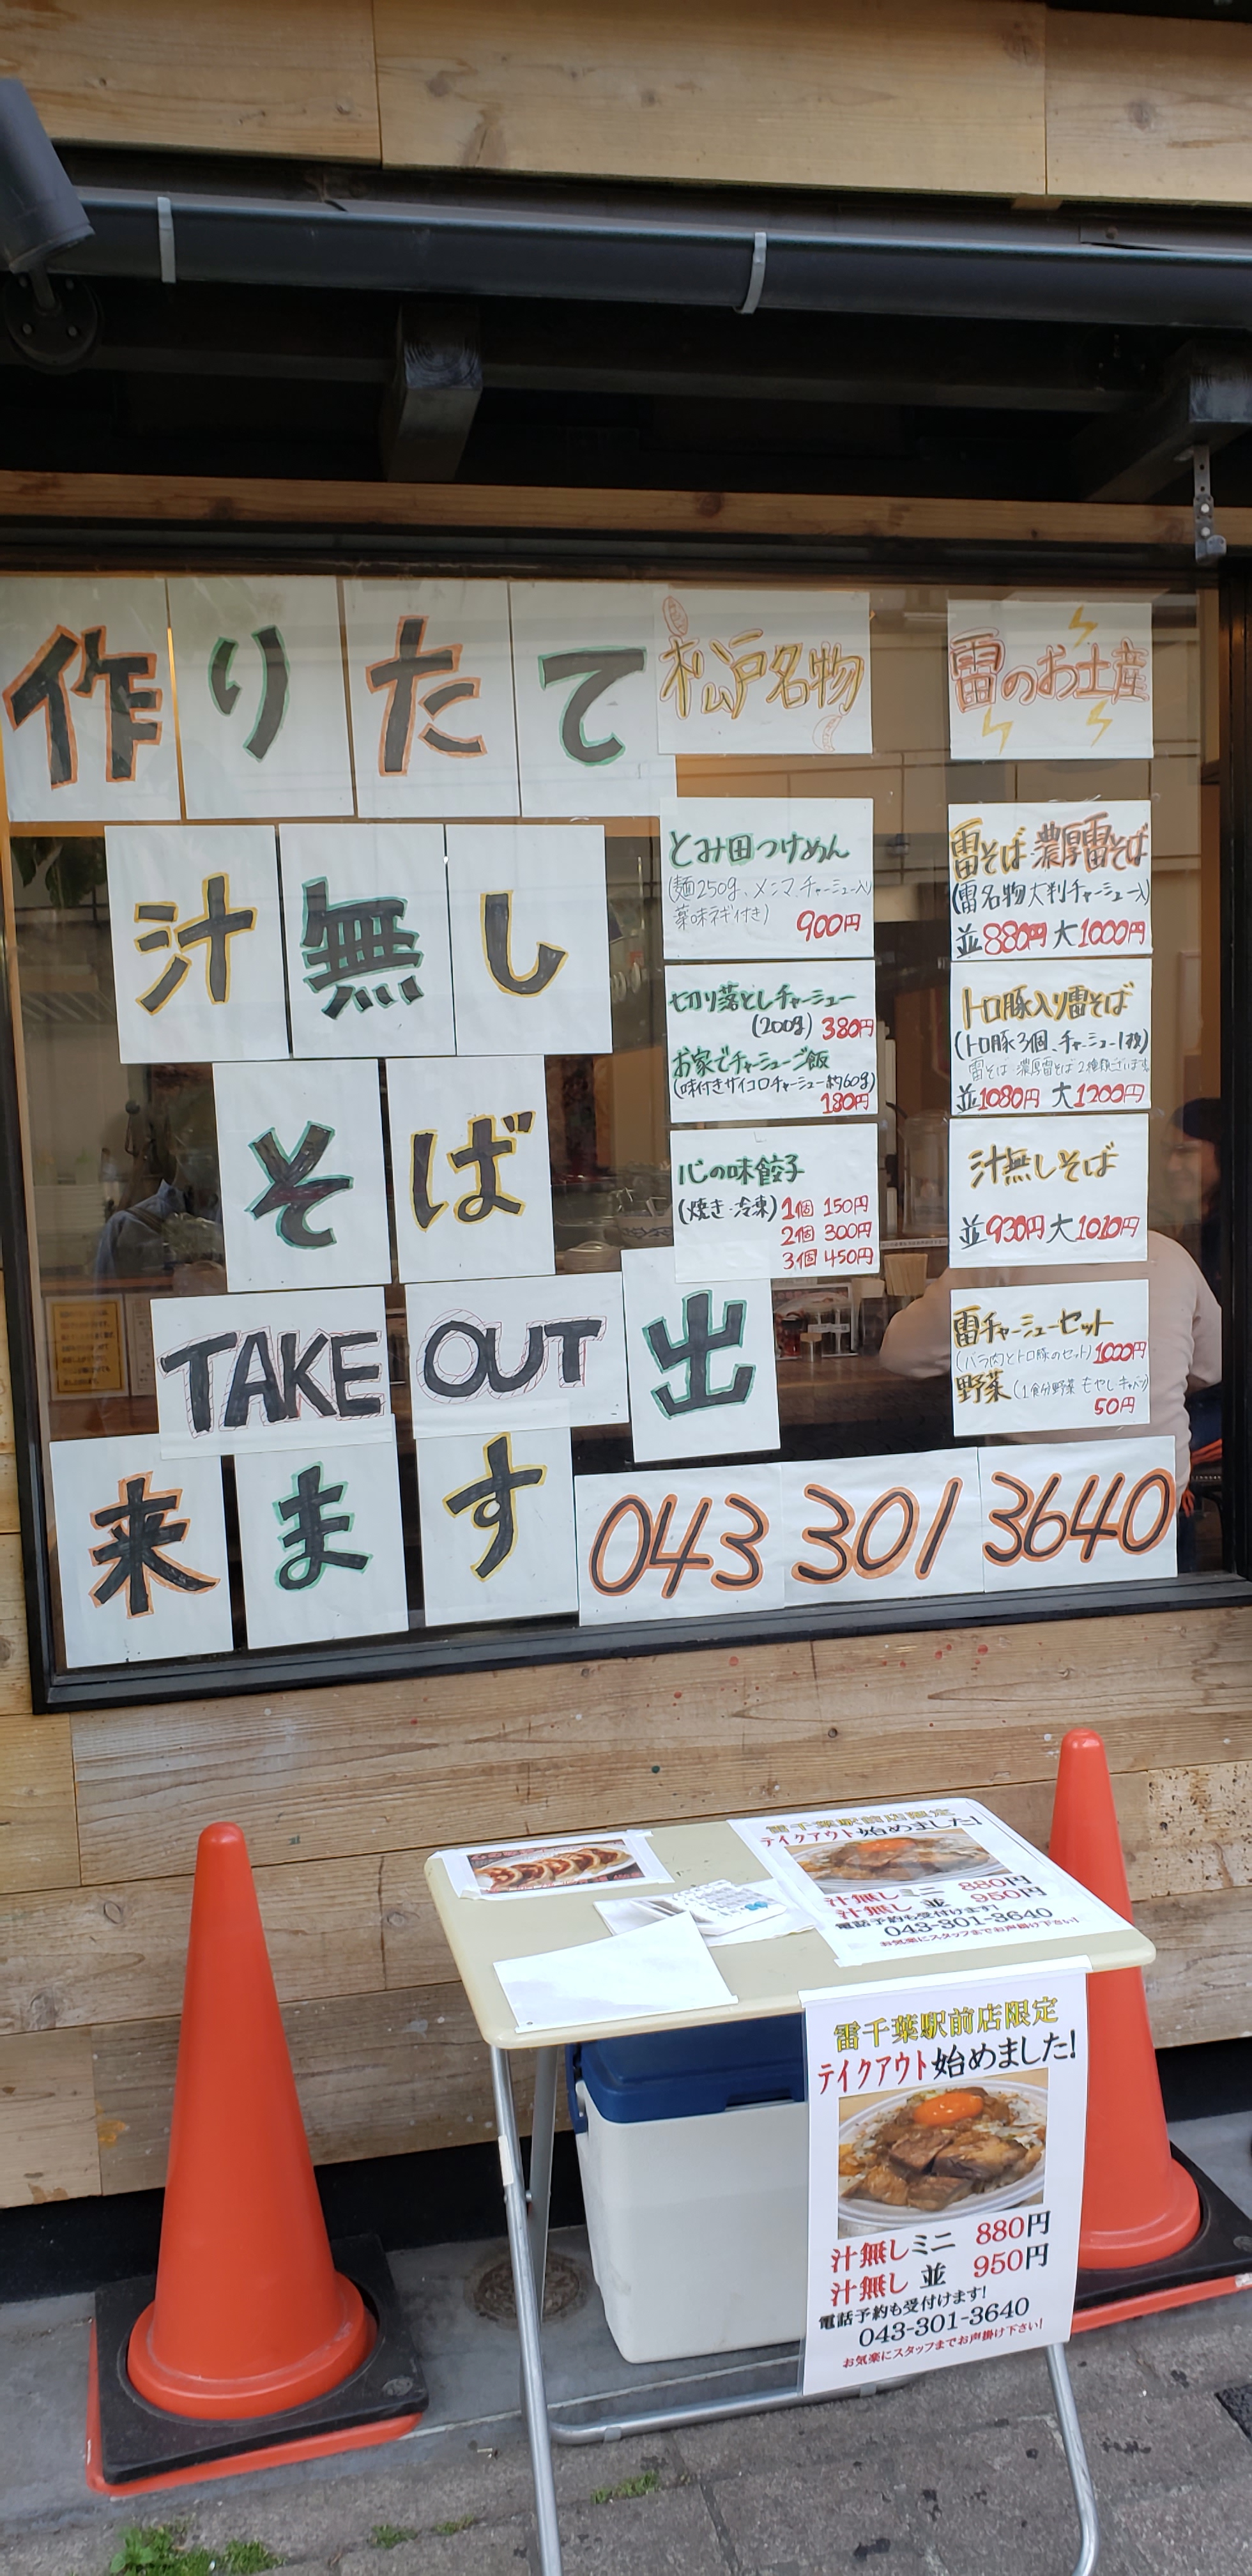 作りたて
汁無し
そば
TAKE OUT 出
来ます
043 301 3640
松戸名物
とみ田つけめん
(麺250g、メンマ、チャーシュー入
薬味ネギ付き)
900円
切り落としチャーシュー
(200g) 380円
お家でチャーシューご飯
(味付きサイコロチャーシュー約60g)
180円
心の味餃子
(焼き・冷凍) 1個 150円
2個 300円
3個 450円
雷のお土産
雷そば 濃厚雷そば
(雷名物大判チャーシュー入)
並880円 大1000円
トロ豚入り雷そば
(トロ豚3個、チャーシュー1枚)
雷そば 濃厚雷そば 2種類ございます
並1080円 大1200円
汁無しそば
並930円 大1010円
雷チャーシューセット
(バラ肉とトロ豚のセット) 1000円
野菜 (1食分野菜 もやし キャベツ)
50円
雷千葉駅前店限定
テイクアウト始めました!
汁無しミニ 880円
汁無し 並 950円
電話予約も受付けます!
043-301-3640
お気楽にスタッフまでお声掛け下さい!
雷千葉駅前店限定
テイクアウト始めました!
汁無しミニ 880円
汁無し 並 950円
電話予約も受付けます!
043-301-3640
お気楽にスタッフまでお声掛け下さい!